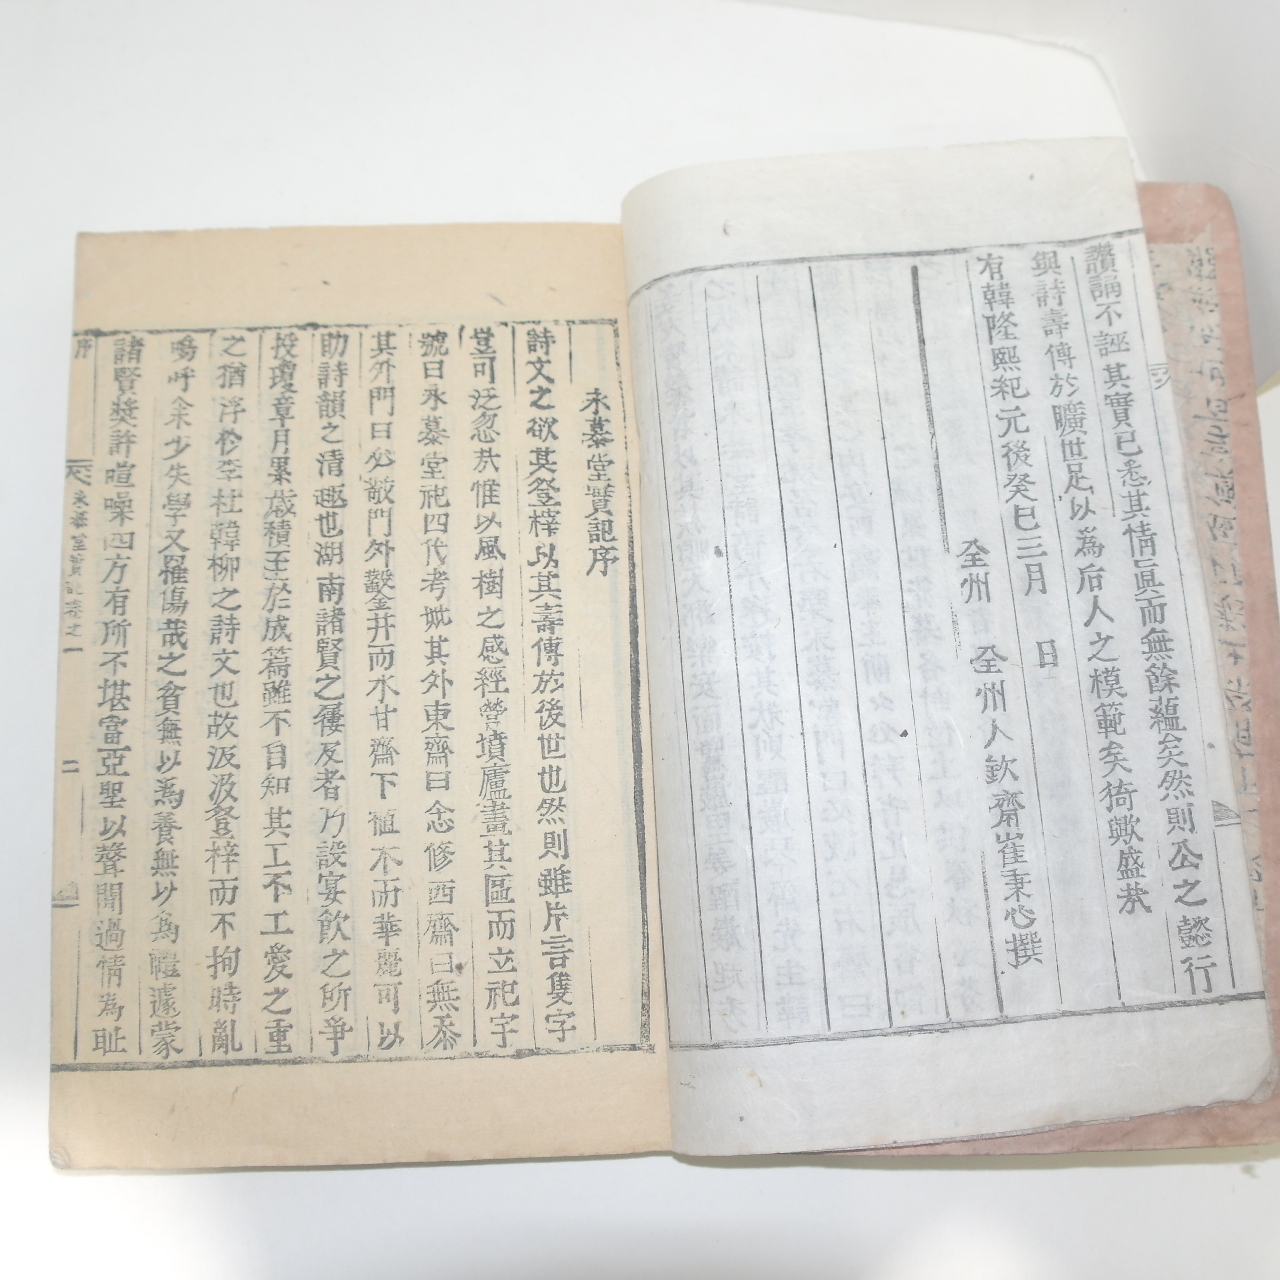 讚誦不誣其實已悉其情眞而無餘蘊矣然則公之懿行
與詩壽傳於曠世足以為后人之模範矣猗歟盛哉
有韓隆熙紀元後癸巳三月 日
全州 全州人欽齋崔秉心撰
永慕堂實記序
詩文之欲其登梓以其壽傳於後世也然則雖片言隻字
豈可泛忽哉惟以風樹之感經營墳廬畫其區而立祀宇
號曰永慕堂祀四代考妣其外東齋曰念修西齋曰無忝
其外門曰必敬門外鑿井而水甘齋下植木而華麗可以
助詩韻之清趣也湖南諸賢之屢及者乃設宴飮之所爭
投瓊章月累歲積至於成篇雖不自知其工不工愛之重
之猶浮於李杜韓柳之詩文也故汲汲登梓而不拘時亂
嗚呼余少失學又罹傷哉之貧無以爲養無以為禮遽蒙
諸賢奬許喧噪四方有所不堪當亞聖以聲聞過情為耻
序
永慕堂實記卷之一
二